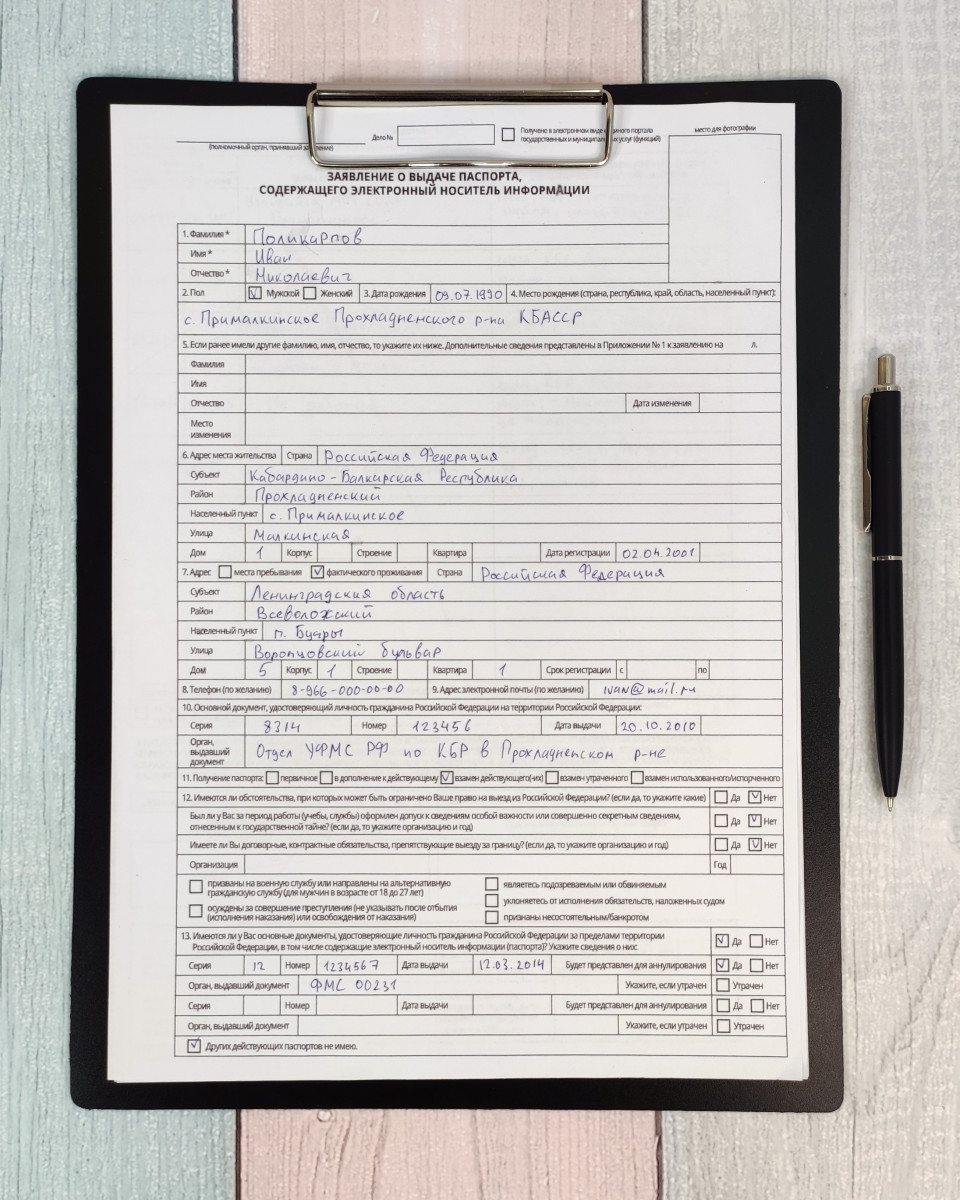 Дело №
Получено в электронном виде с единого портала
государственных и муниципальных услуг (функций)
место для фотографии
(полномочный орган, принявший заявление)
ЗАЯВЛЕНИЕ О ВЫДАЧЕ ПАСПОРТА,
СОДЕРЖАЩЕГО ЭЛЕКТРОННЫЙ НОСИТЕЛЬ ИНФОРМАЦИИ
1. Фамилия * Поликарпов
Имя * Иван
Отчество * Николаевич
2. Пол Мужской Женский 3. Дата рождения 09.07.1990 4. Место рождения (страна, республика, край, область, населенный пункт):
с. Прималкинское Прохладненского р-на КБАССР
5. Если ранее имели другие фамилию, имя, отчество, то укажите их ниже. Дополнительные сведения представлены в Приложении № 1 к заявлению на л.
Фамилия
Имя
Отчество Дата изменения
Место
изменения
6. Адрес места жительства Страна Российская Федерация
Субъект Кабардино-Балкарская Республика
Район Прохладненский
Населенный пункт с. Прималкинское
Улица Малкинская
Дом 1 Корпус Строение Квартира Дата регистрации 02.04.2001
7. Адрес места пребывания фактического проживания Страна Российская Федерация
Субъект Ленинградская область
Район Всеволожский
Населенный пункт п. Бугры
Улица Воронцовский бульвар
Дом 5 Корпус 1 Строение Квартира 1 Срок регистрации с по
8. Телефон (по желанию) 8-966-000-00-00 9. Адрес электронной почты (по желанию) ivan@mail.ru
10. Основной документ, удостоверяющий личность гражданина Российской Федерации на территории Российской Федерации:
Серия 8314 Номер 123456 Дата выдачи 20.10.2010
Орган,
выдавший
документ Отдел УФМС РФ по КБР в Прохладненском р-не
11. Получение паспорта: первичное в дополнение к действующему взамен действующего(-их) взамен утраченного взамен использованного/испорченного
12. Имеются ли обстоятельства, при которых может быть ограничено Ваше право на выезд из Российской Федерации? (если да, то укажите какие) Да Нет
Был ли у Вас за период работы (учебы, службы) оформлен допуск к сведениям особой важности или совершенно секретным сведениям,
отнесенным к государственной тайне? (если да, то укажите организацию и год) Да Нет
Имеете ли Вы договорные, контрактные обязательства, препятствующие выезду за границу? (если да, то укажите организацию и год) Да Нет
Организация Год
призваны на военную службу или направлены на альтернативную
гражданскую службу (для мужчин в возрасте от 18 до 27 лет)
осуждены за совершение преступления (не указывать после отбытия
(исполнения наказания) или освобождения от наказания)
являетесь подозреваемым или обвиняемым
уклоняетесь от исполнения обязательств, наложенных судом
признаны несостоятельным/банкротом
13. Имеются ли у Вас основные документы, удостоверяющие личность гражданина Российской Федерации за пределами территории
Российской Федерации, в том числе содержащие электронный носитель информации (паспорта)? Укажите сведения о них: Да Нет
Серия 12 Номер 1234567 Дата выдачи 12.03.2014 Будет представлен для аннулирования Да Нет
Орган, выдавший документ ФМС 00231 Укажите, если утрачен Утрачен
Серия Номер Дата выдачи Будет представлен для аннулирования Да Нет
Орган, выдавший документ Укажите, если утрачен Утрачен
Других действующих паспортов не имею.